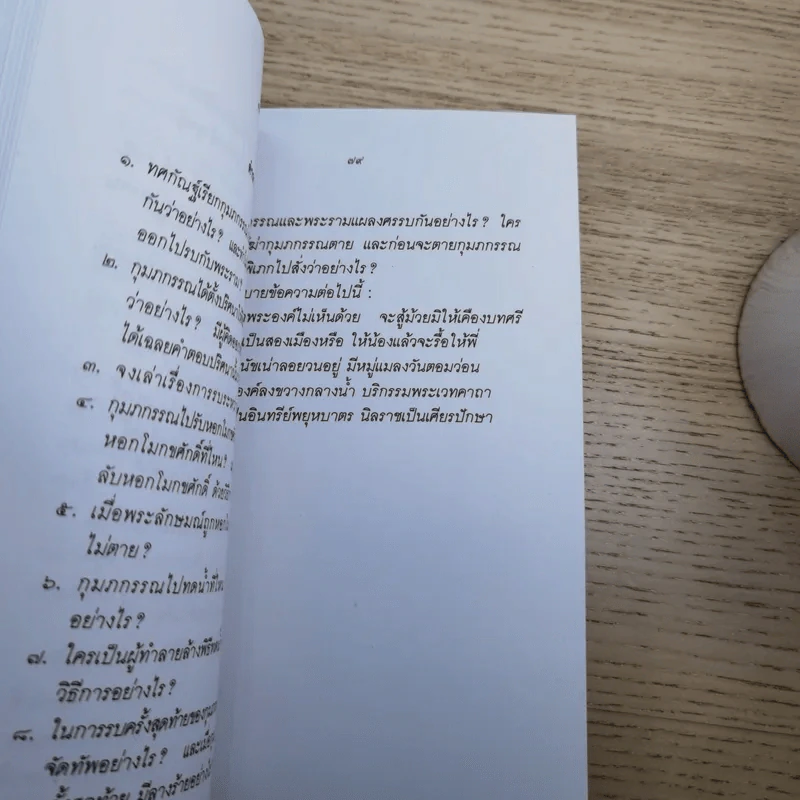 ๑. ทศกัณฐ์เรียกกุมภกรรณ
กันว่าอย่างไร?
ออกไปรบกับพระราม
๒. กุมภกรรณได้ตั้งปริศนา
ว่าอย่างไร? มีผู้คิด
ได้เฉลยคำตอบปริศนา
๓. จงเล่าเรื่องการรบระหว่าง
๔. กุมภกรรณไปรับหอกโมกข
หอกโมกขศักดิ์ที่ไหน?
ลับหอกโมกขศักดิ์ ด้วย
๕. เมื่อพระลักษมณ์ถูกหอก
ไม่ตาย?
๖. กุมภกรรณไปทดน้ำที่ไหน
อย่างไร?
๗. ใครเป็นผู้ทำลายล้างพิธีทด
วิธีการอย่างไร?
๘. ในการรบครั้งสุดท้ายของกุม
จัดทัพอย่างไร? และเมื่อ
มีลางร้ายอย่าง
๗๙
รรณและพระรามแผลงศรรบกันอย่างไร? ใคร
ฆ่ากุมภกรรณตาย และก่อนจะตายกุมภกรรณ
พิเภกไปสั่งว่าอย่างไร?
บายข้อความต่อไปนี้ :
พระองค์ไม่เห็นด้วย จะสู้ม้วยมิให้เคืองบทศรี
เป็นสองเมืองหรือ ให้น้องแล้วจะรื้อให้พี่
นัขเน่าลอยวนอยู่ มีหมู่แมลงวันตอมว่อน
องค์ลงขวางกลางน้ำ บริกรรมพระเวทคาถา
นอินทรีย์พยุหบาตร นิลราชเป็นเศียรปักษา